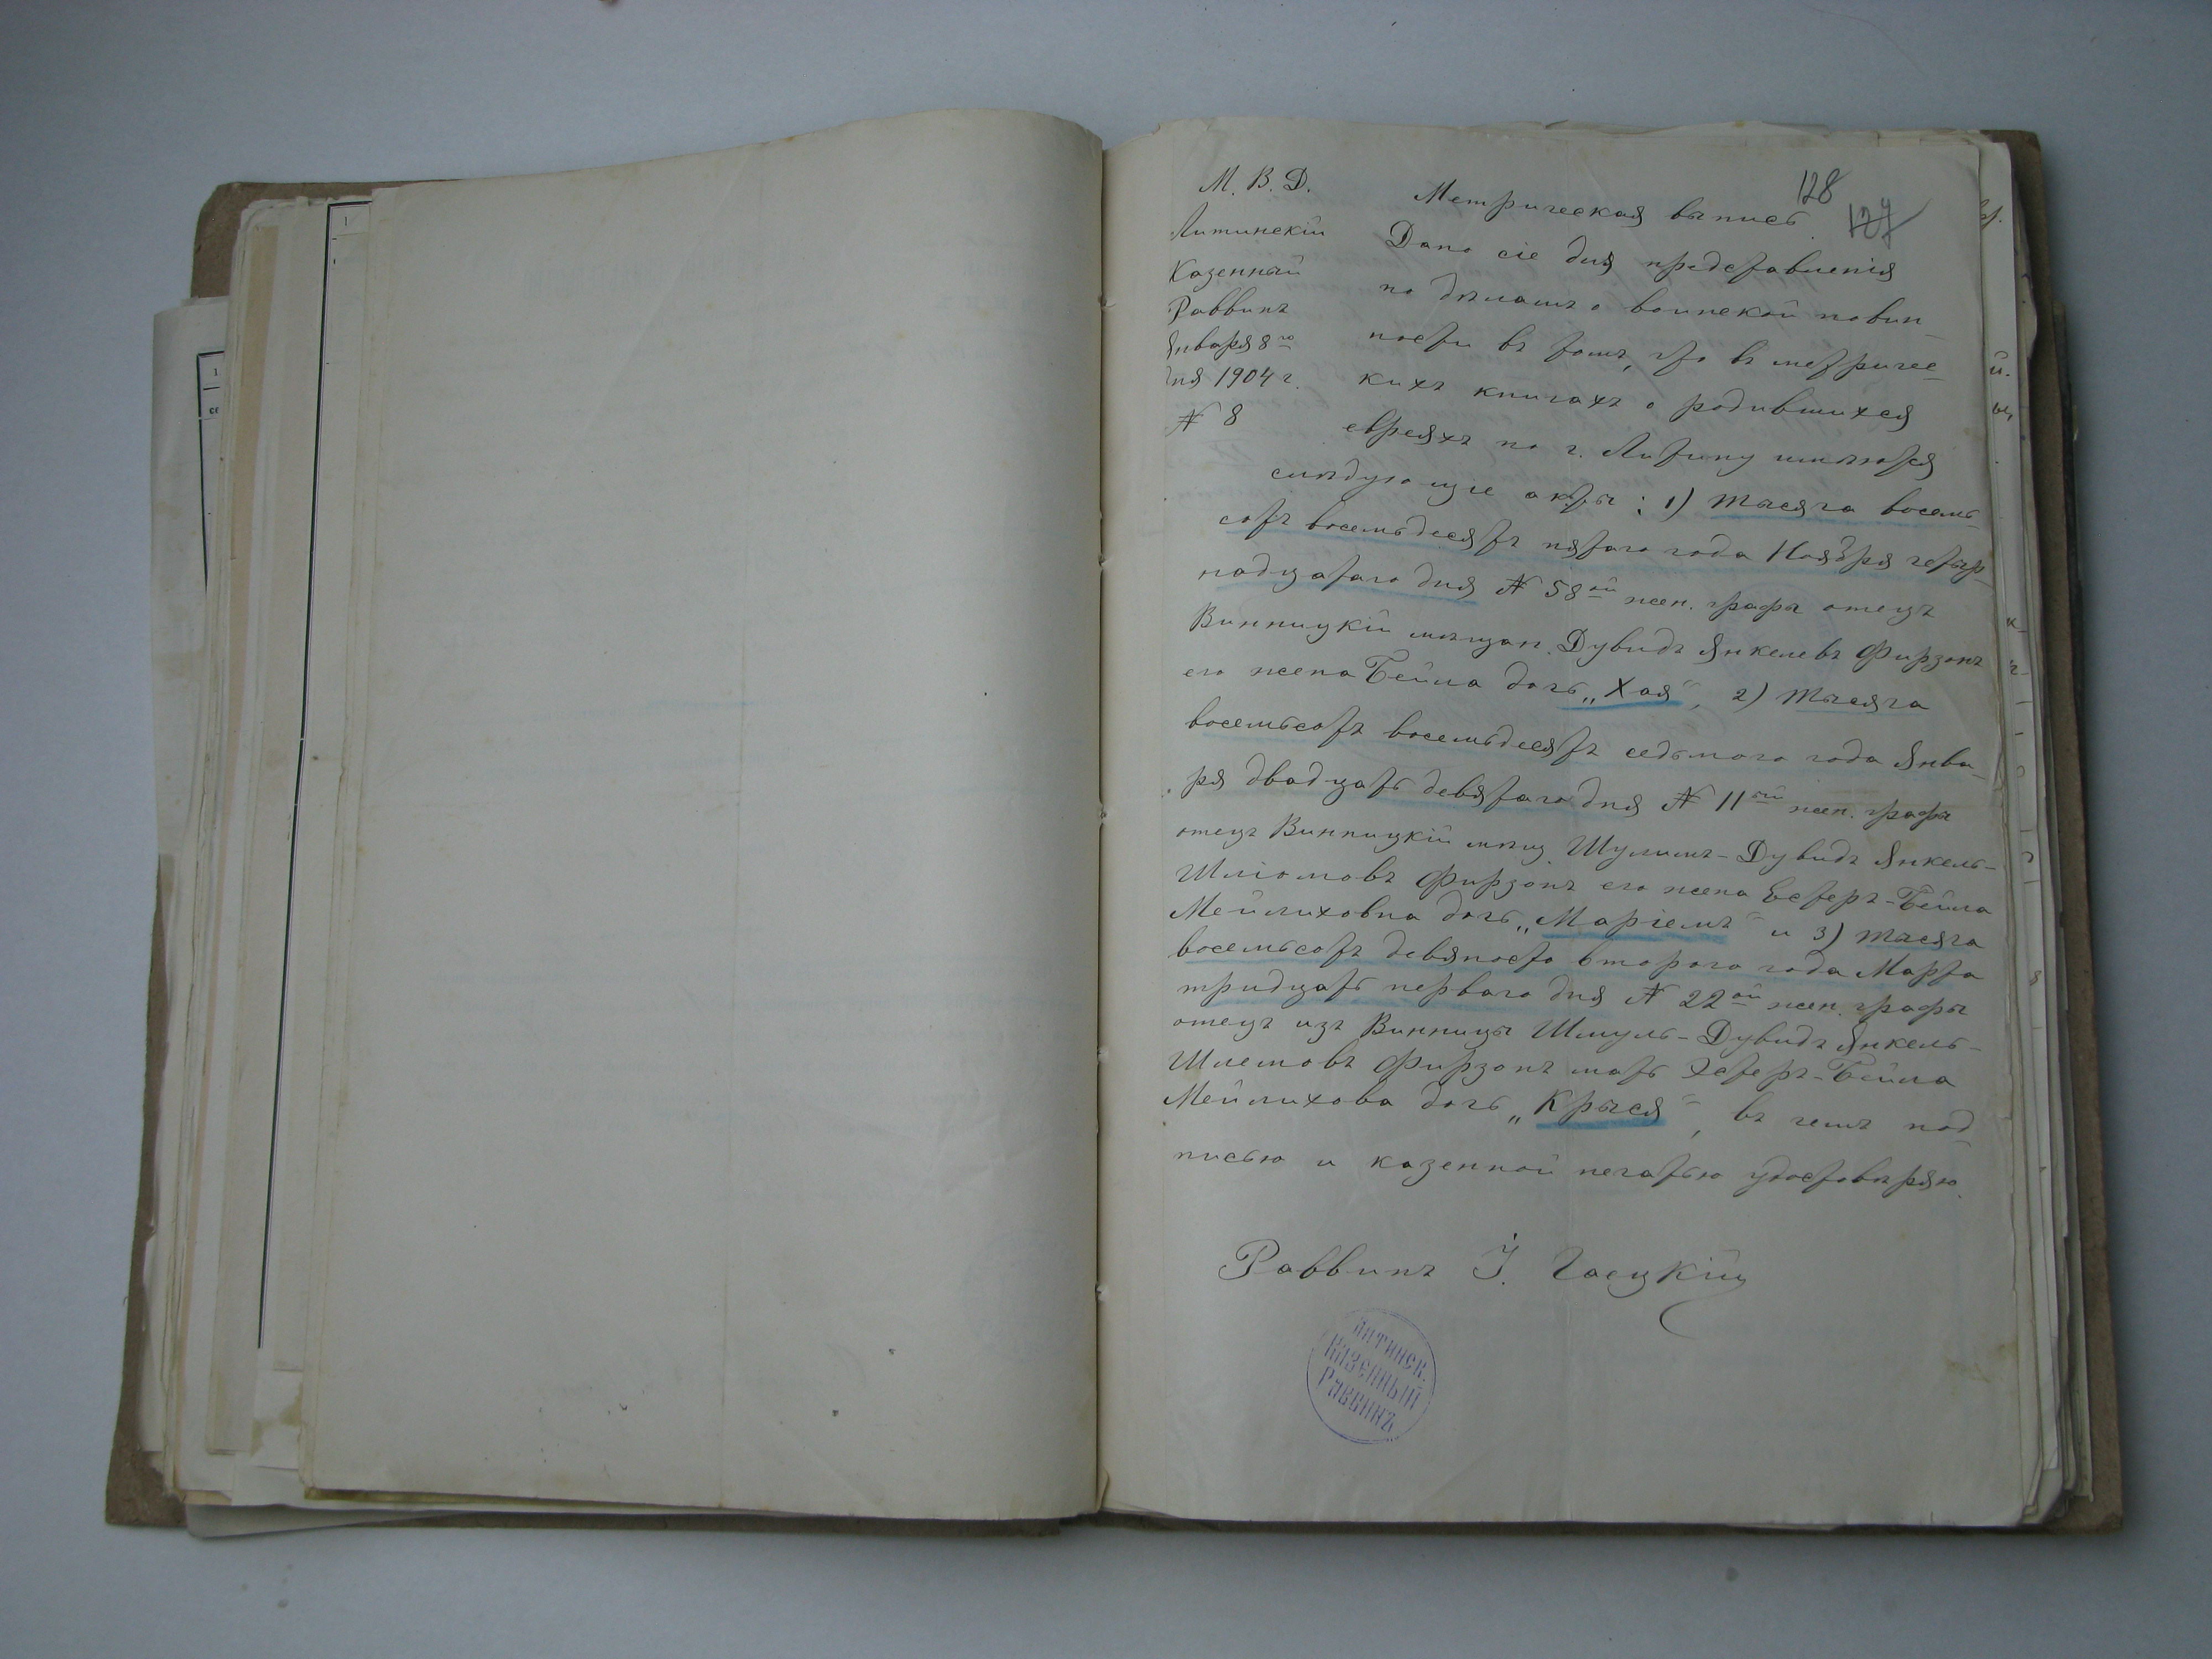 128
127
М. В. Д.
Литинскій
Казенный
Раввинъ
Января 8го
дня 1904 г.
№ 8
Метрическая выпись.
Дано сіе для представленія
по дѣламъ о воинской повин-
ности въ томъ, что въ метричес-
кихъ книгахъ о родившихся
евреяхъ по г. Литину имѣются
слѣдующіе акты: 1) тысяча восемь-
сотъ восемьдесятъ пятаго года Ноября четыр-
надцатаго дня № 58ой жен. графы отецъ
Винницкій мѣщан. Дувидъ Янкелевъ Фирзонъ
его жена Бейла дочь „Хая", 2) тысяча
восемьсотъ восемьдесятъ седьмого года Янва-
ря двадцать девятаго дня № 11ый жен. графы
отецъ Винницкій мѣщ. Шулимъ-Дувидъ Янкель-
Шліомовъ Фирзонъ его жена Естеръ-Бейла
Мейлиховна дочь „Маріемъ" и 3) тысяча
восемьсотъ девяносто второго года Марта
тридцать перваго дня № 22ой жен. графы
отецъ изъ Винницы Шмуль-Дувидъ Янкель-
Шлемовъ Фирзонъ мать Эстеръ-Бейла
Мейлихова дочь „Крыся", въ чемъ под-
писью и казенной печатью удостовѣряю.
Раввинъ І. Гасцкій
Литинск.
Казенный
Раввинъ